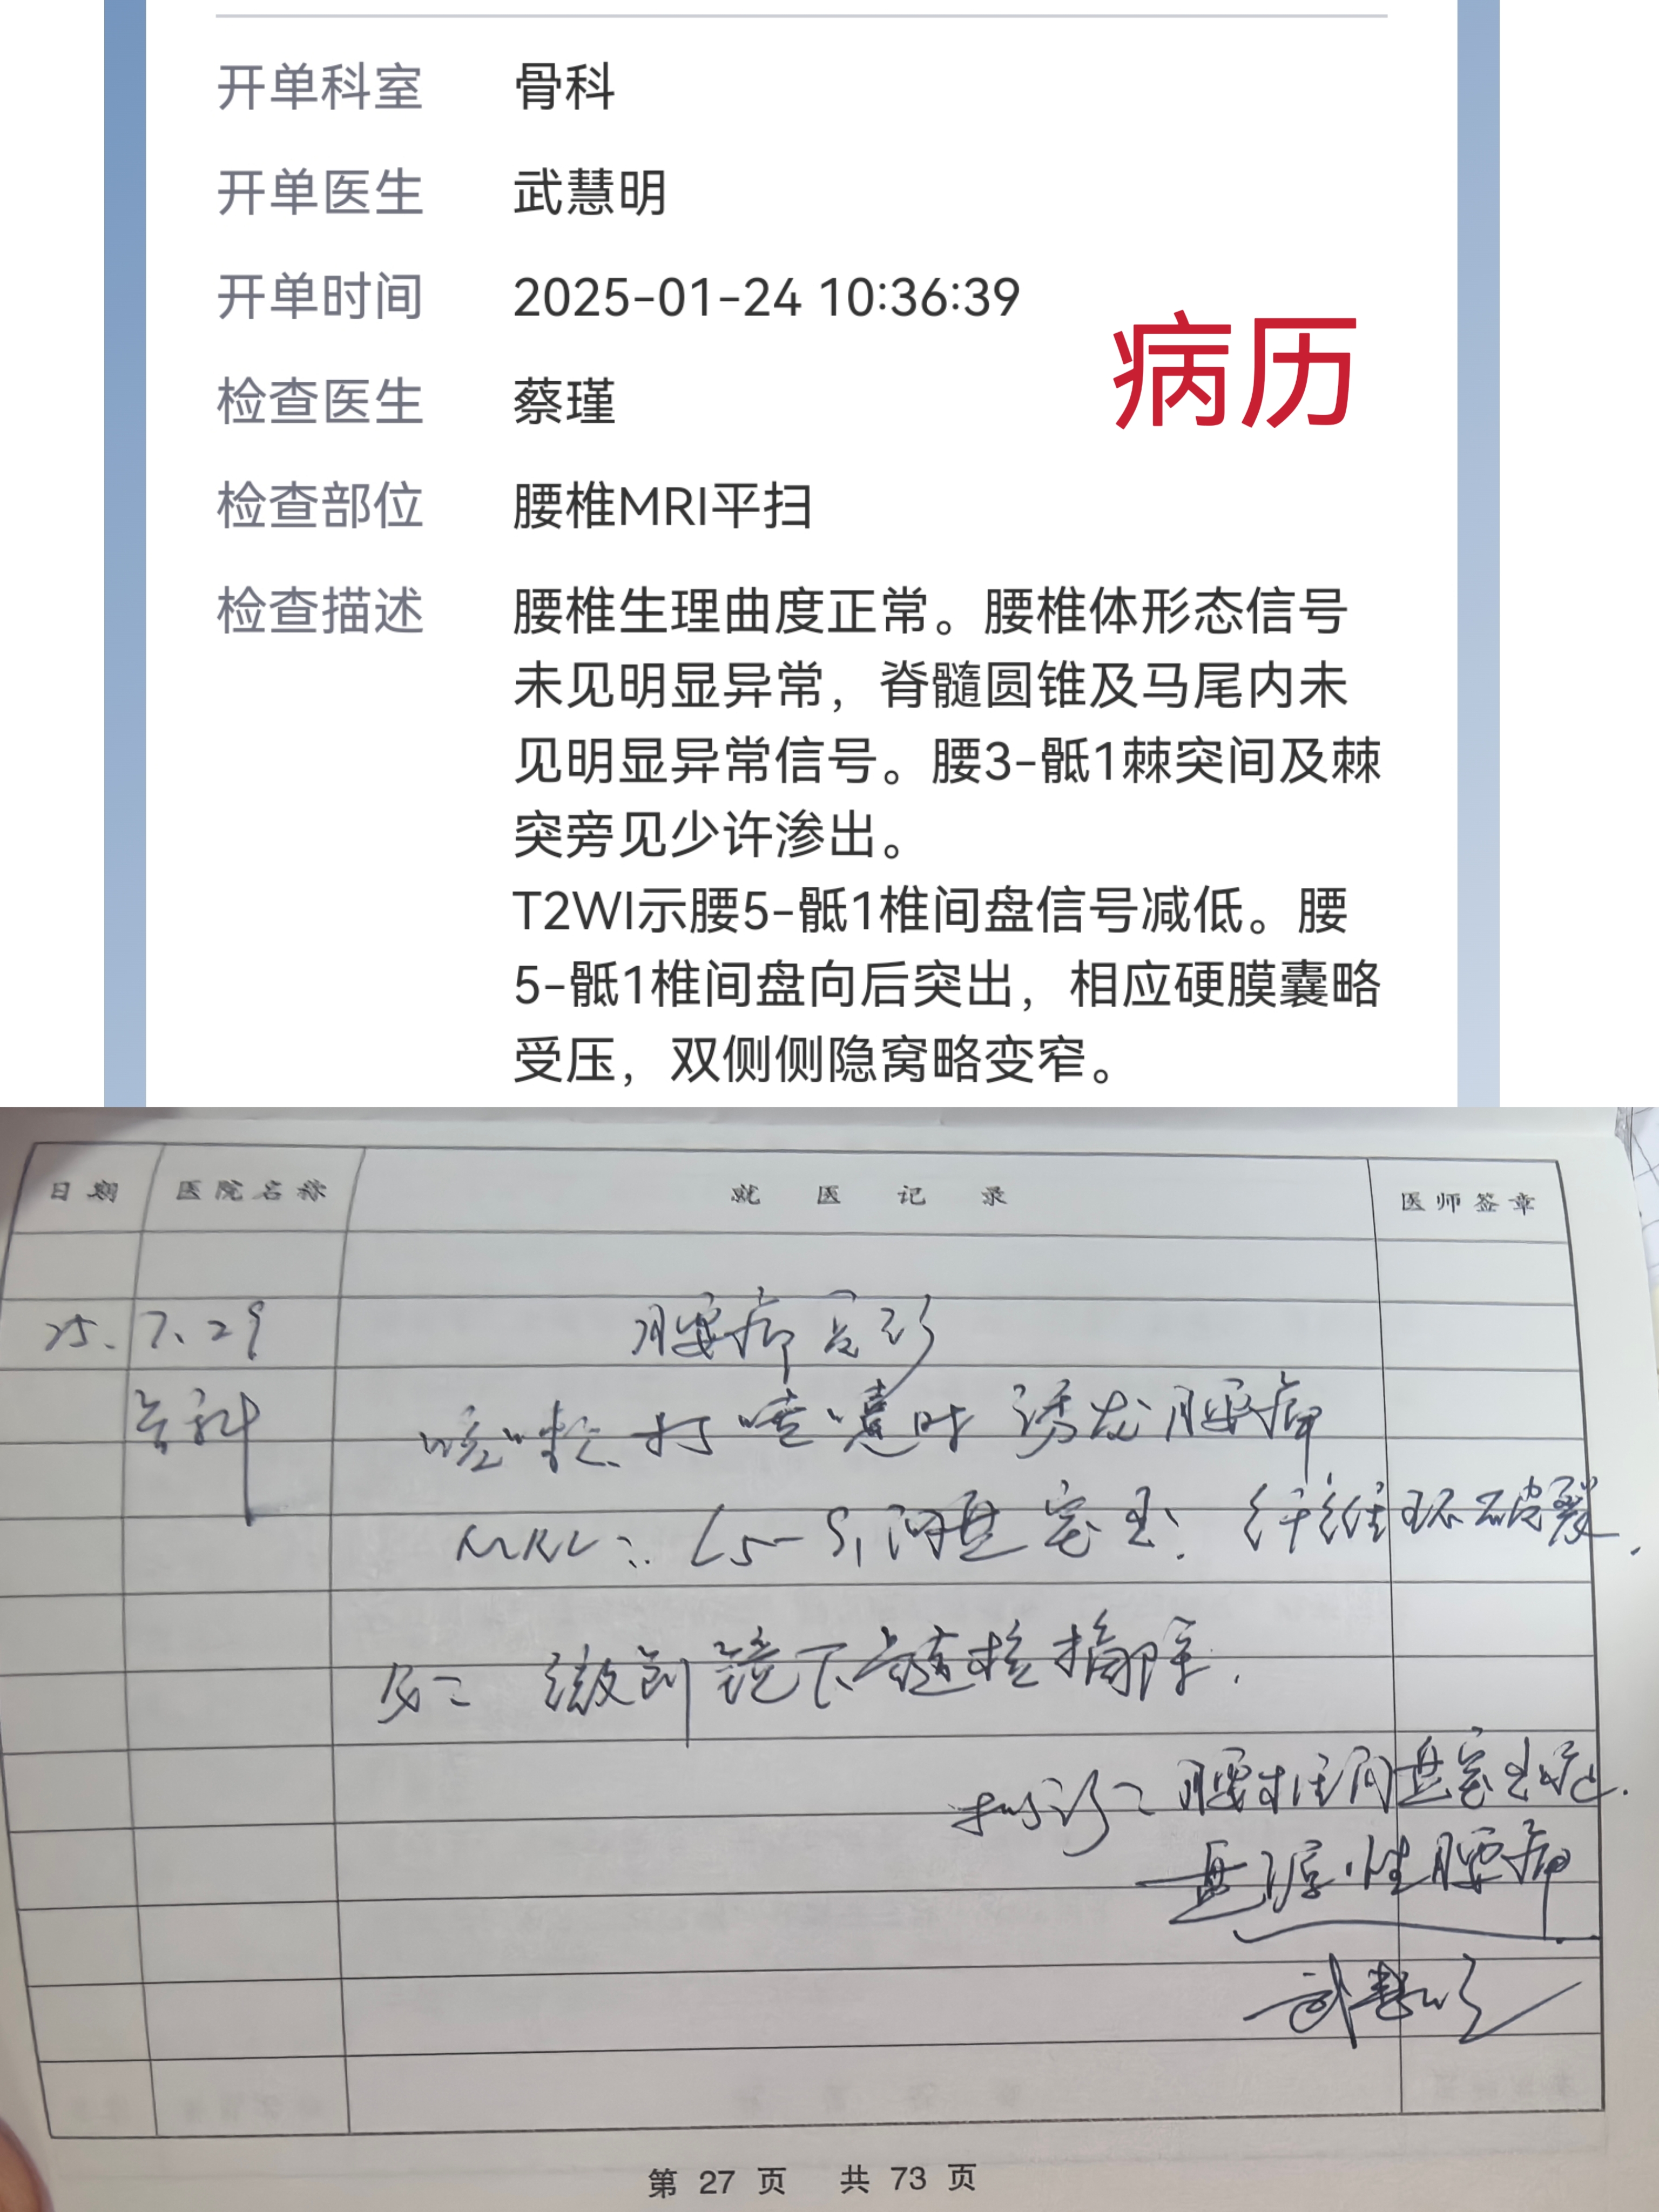 开单科室 骨科
开单医生 武慧明
开单时间 2025-01-24 10:36:39
病历
检查医生 蔡瑾
检查部位 腰椎MRI平扫
检查描述 腰椎生理曲度正常。腰椎体形态信号
未见明显异常，脊髓圆锥及马尾内未
见明显异常信号。腰3-骶1棘突间及棘
突旁见少许渗出。
T2WI示腰5-骶1椎间盘信号减低。腰
5-骶1椎间盘向后突出，相应硬膜囊略
受压，双侧侧隐窝略变窄。
日期 医院名称 就医记录 医师签章
25.7.29 腰痛复诊
骨科 咳嗽、打喷嚏时诱发腰痛
MRI: L5-S1间盘突出; 纤维环破裂.
R: 微创镜下髓核摘除.
拟诊: 腰椎间盘突出症.
盘源性腰痛
武慧明
第 27 页 共 73 页